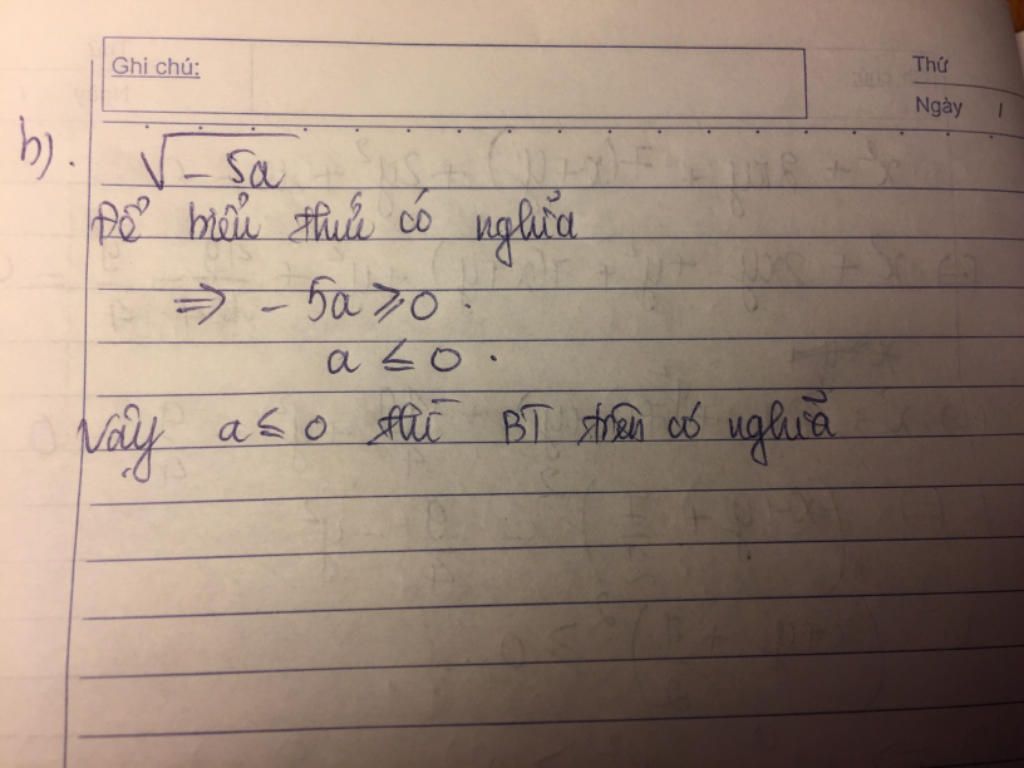 Ghi chú:
Thứ
Ngày
b).
√-5a
Để biểu thức có nghĩa
⇒ - 5a ⩾ 0.
a ≤ 0.
Vậy a ≤ 0 thì BT trên có nghĩa